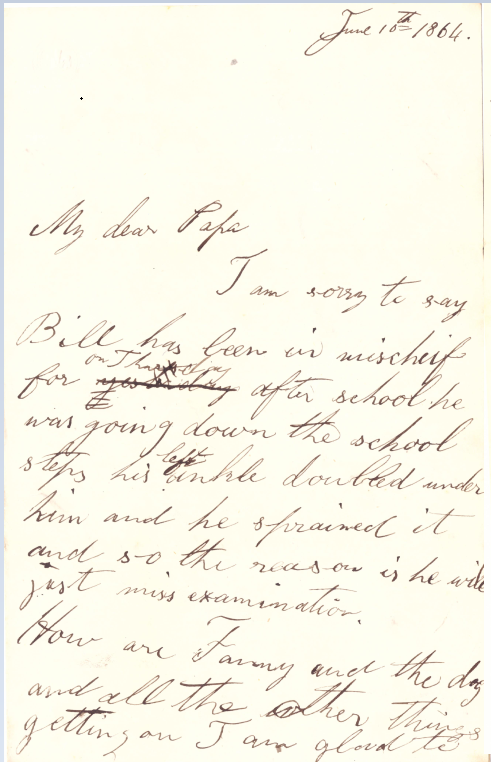 June 10th 1864.
My dear Papa
I am sorry to say
Bill has been in mischeif
on Thursday
for yesterday after school he
was going down the school
left
steps his ankle doubled under
him and he sprained it
and so the reason is he will
just miss examination.
How are Fanny and the dog
and all the other things
getting on I am glad to